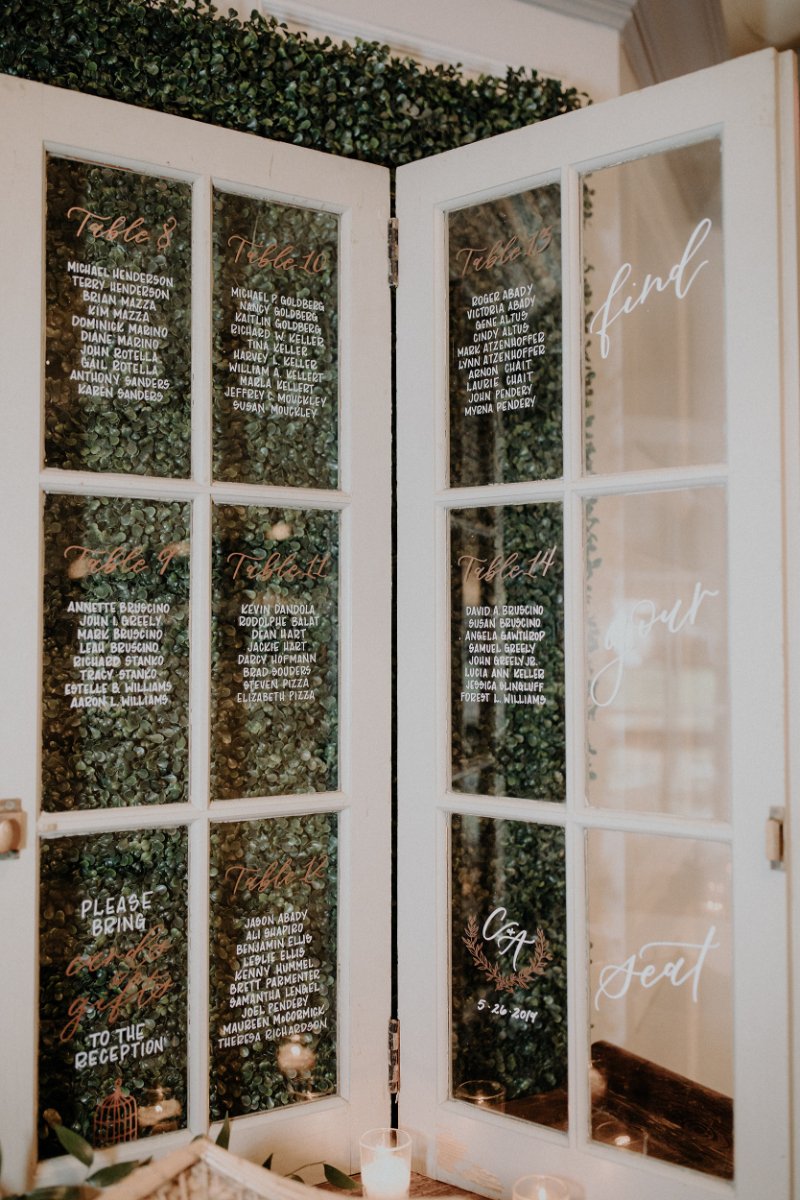 Table 8
MICHAEL HENDERSON
TERRY HENDERSON
BRIAN MAZZA
KIM MAZZA
DOMINICK MARINO
DIANE MARINO
JOHN ROTELLA
GAIL ROTELLA
ANTHONY SANDERS
KAREN SANDERS
Table 9
ANNETTE BRUSCINO
JOHN I. GREELY
MARK BRUSCINO
LEAH BRUSCINO
RICHARD STANKO
TRACY STANKO
ESTELLE B. WILLIAMS
AARON L. WILLIAMS
PLEASE
BRING
cards
and
gifts
TO THE
RECEPTION
Table 10
MICHAEL P. GOLDBERG
NANCY GOLDBERG
KAITLIN GOLDBERG
RICHARD W. KELLER
TINA KELLER
HARVEY L. KELLER
WILLIAM A. KELLERT
MARLA KELLERT
JEFFREY C MOUCKLEY
SUSAN MOUCKLEY
Table 11
KEVIN DANDOLA
RODOLPHE BALAT
DEAN HART
JACKIE HART
DARCY HOFMANN
BRAD SOUDERS
STEVEN PIZZA
ELIZABETH PIZZA
Table 12
JASON ABADY
ALI SHAPIRO
BENJAMIN ELLIS
LESLIE ELLIS
KENNY HUMMEL
BRETT PARMENTER
SAMANTHA LENGEL
JOEL PENDERY
MAUREEN McCORMICK
THERESA RICHARDSON
Table 13
ROGER ABADY
VICTORIA ABADY
GENE ALTUS
CINDY ALTUS
MARK ATZENHOFFER
LYNN ATZENHOFFER
ARNON CHAIT
LAURIE CHAIT
JOHN PENDERY
MYRNA PENDERY
Table 14
DAVID A. BRUSCINO
SUSAN BRUSCINO
ANGELA GAWTHROP
SAMUEL GREELY
JOHN GREELY JR.
LUCIA ANN KELLER
JESSICA SLINGLUFF
FOREST L. WILLIAMS
C+A
5-26-2019
find
your
seat